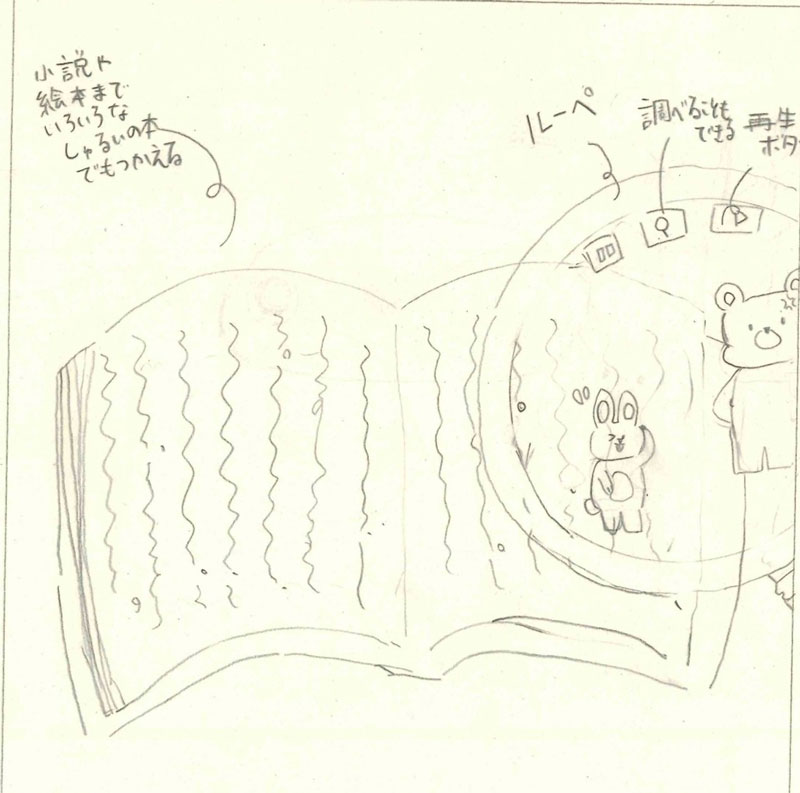 小説や
絵本まで
いろいろな
しゅるいの本
でもつかえる
ルーペ
調べることも
できる
再生
ボタ